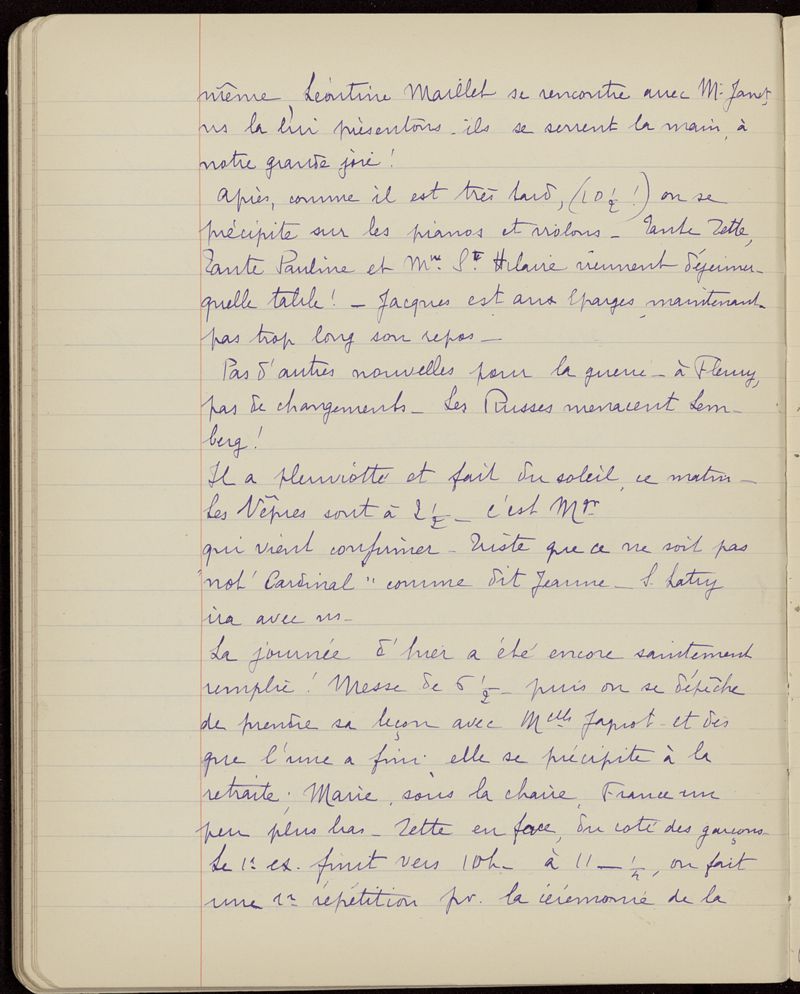 même, Léontine Maillet se rencontre avec Mr Janot,
ns la lui présentons. ils se serrent la main, à
notre grande joie!
Après, comme il est très tard, (10 ½ !) on se
précipite sur les pianos et violons – Tante Zette,
Tante Pauline et Mme St Hilaire viennent déjeuner –
quelle table! – Jacques est aux Eparges, maintenant –
pas trop long son repos –
Pas d'autres nouvelles pour la guerre – à Fleury,
pas de changements – Les Russes menacent Lem-
berg!
Il a pleuviotté et fait du soleil, ce matin –
Les Vêpres sont à 2 ½ – c'est Mgr
qui vient confirmer – Triste que ce ne soit pas
"not' Cardinal" comme dit Jeanne – S. Latry
ira avec ns –
La journée d'hier a été encore saintement
remplie! Messe de 6 ½ – puis on se dépêche
de prendre sa leçon avec Melle Japiot – et dès
que l'une a fini elle se précipite à la
retraite; Marie, sous la chaire, France un
peu plus bas – Zette en face, du coté des garçons –
Le 1r ex. finit vers 10h – à 11 – ¼, on fait
une 1re répétition pr. la cérémonie de la